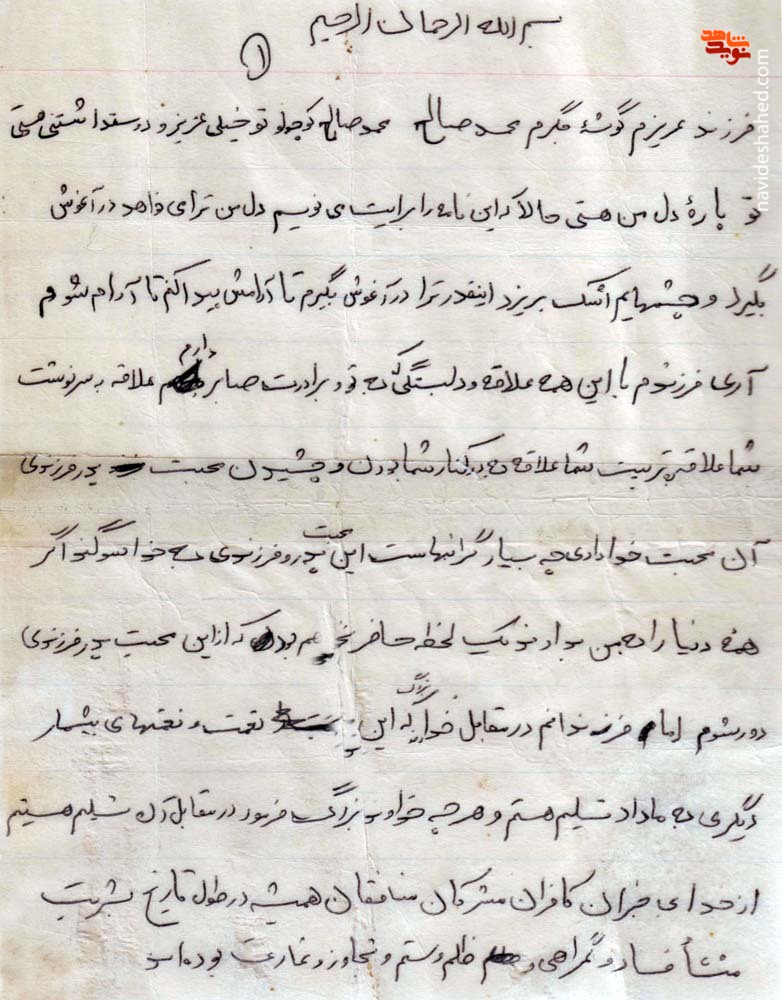 بسم الله الرحمان الرحیم
۱
نوید شاهد
navideshahed.com
فرزند عزیزم گوشهٔ جگرم محمد صالح محمد صالح کوچولو تو خیلی عزیز و دوستداشتنی هستی
تو پارهٔ دل من هستی حالا که این نامه را برایت می نویسم دل من ترا می خواهد در آغوش
بگیرد و چشمهایم اشک بریزد اینقدر ترا در آغوش بگیرم تا آرامش پیدا کنم تا آرام شوم
آری فرزندم با این همه علاقه و دلبستگی که به تو و برادرت صابر دارم علاقه به سرنوشت
شما علاقه بتربیت شما علاقه به در کنار شما بودن و چشیدن محبت پدر فرزندی
آن محبت خدادادی چه بسیار گرانبهاست این محبت پدر و فرزندی به خدا سوگند اگر
همهٔ دنیا را به من بدادند یک لحظه حاضر نخواهم بود که از این محبت پدر فرزندی
دور شوم اما فرزندانم در مقابل خدا که این بزرگ نعمت و نعمتهای بیشمار
دیگری به ما داد تسلیم هستم و هر چه خداوند بزرگ فرمود در مقابل آن تسلیم هستیم
از خدا بی خبران کافران مشرکان منافقان همیشه در طول تاریخ بشریت
منشأ فساد و گمراهی و ظلم و ستم و تجاوز و غارت بوده‌اند